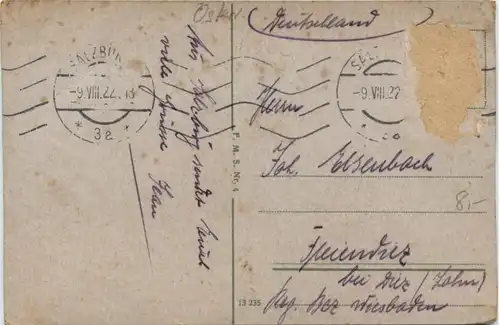 (Deutschland)
SALZBURG
-9.VIII.22.18
* 3a *
SALZ
-9.VIII.22
Aus Salzburg sendet
viele Grüsse Jean
P. M. S. Nr. 4
Herrn
Joh. Elsenbach
Freiendiez
bei Diez (Lahn)
Reg. Bez Wiesbaden
8,-
13 235